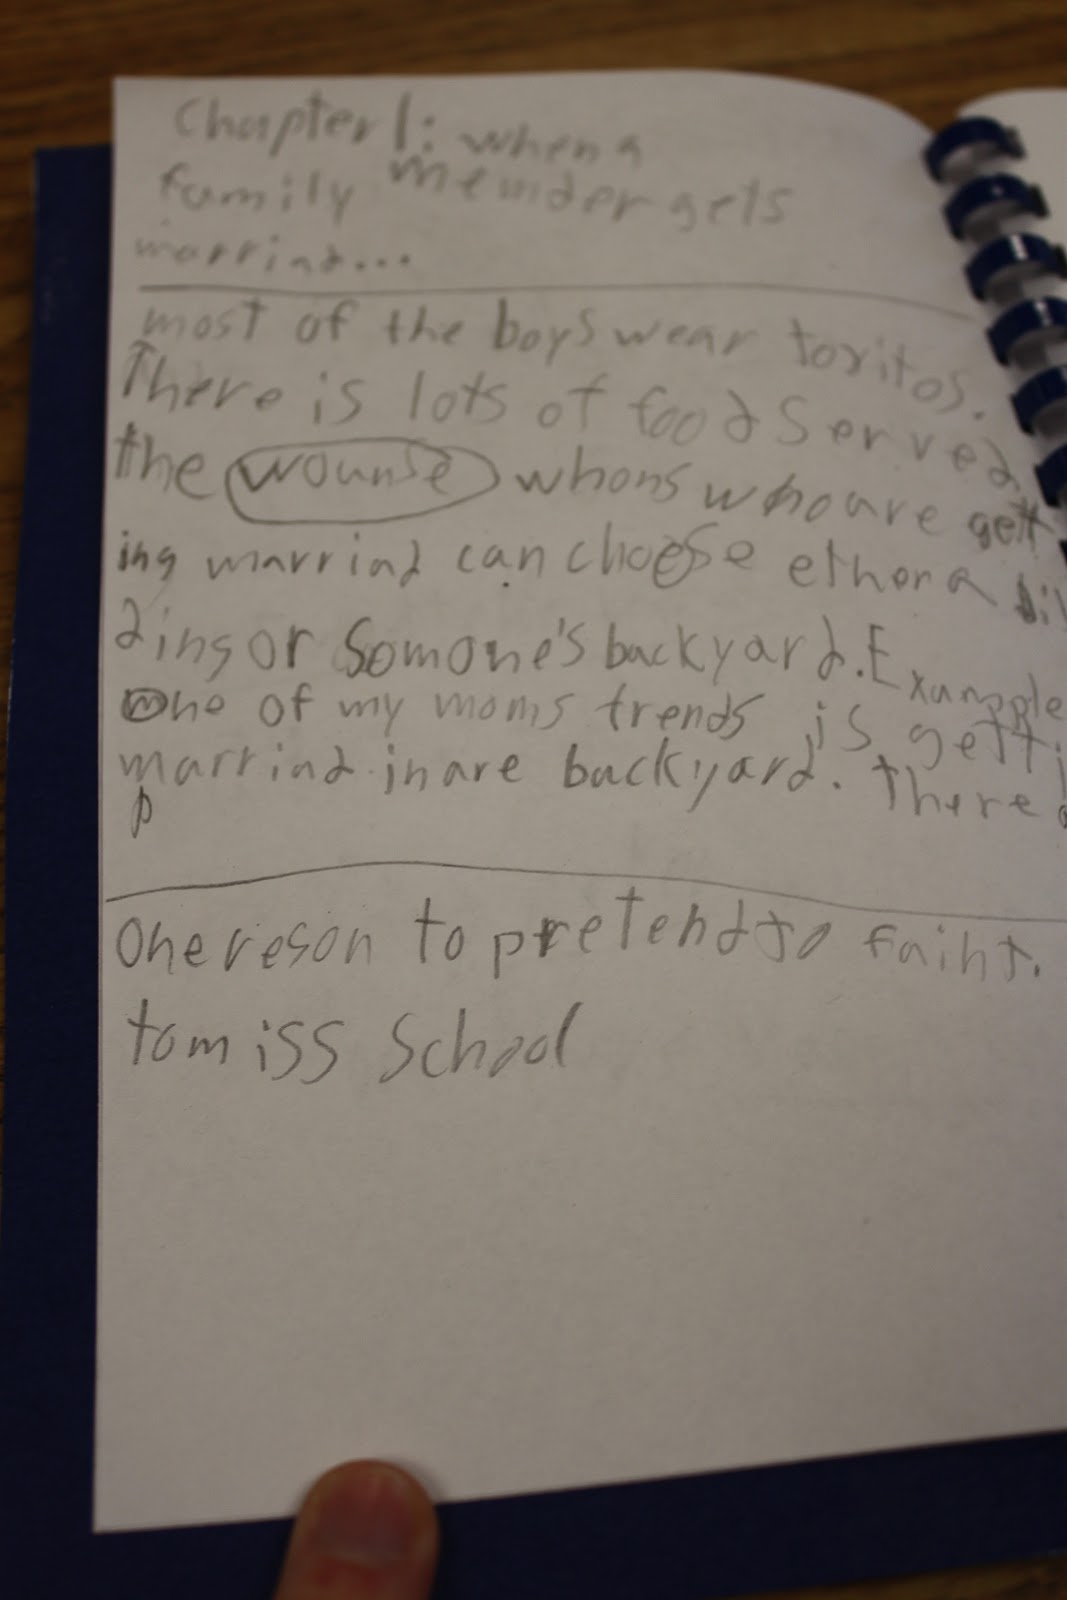 Chapter 1: when a
family memder gets
marrind...
most of the boys wear toxitos.
There is lots of food served
the wounse whons who are gett
ing marrind can choose ethor a bil
ding or Somone's backyard. Example
one of my moms frends is getti
marrind in are backyard. There
p
One reson to pretend to faint.
to miss School